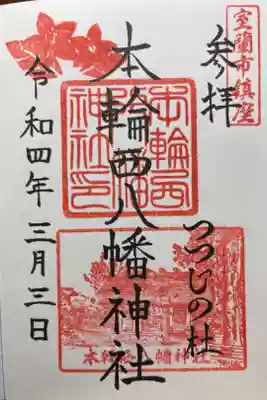 室蘭市鎮座
参拝
つつじの杜
本輪西八幡神社
本輪西
神社印
本輪西八幡神社
令和四年三月三日